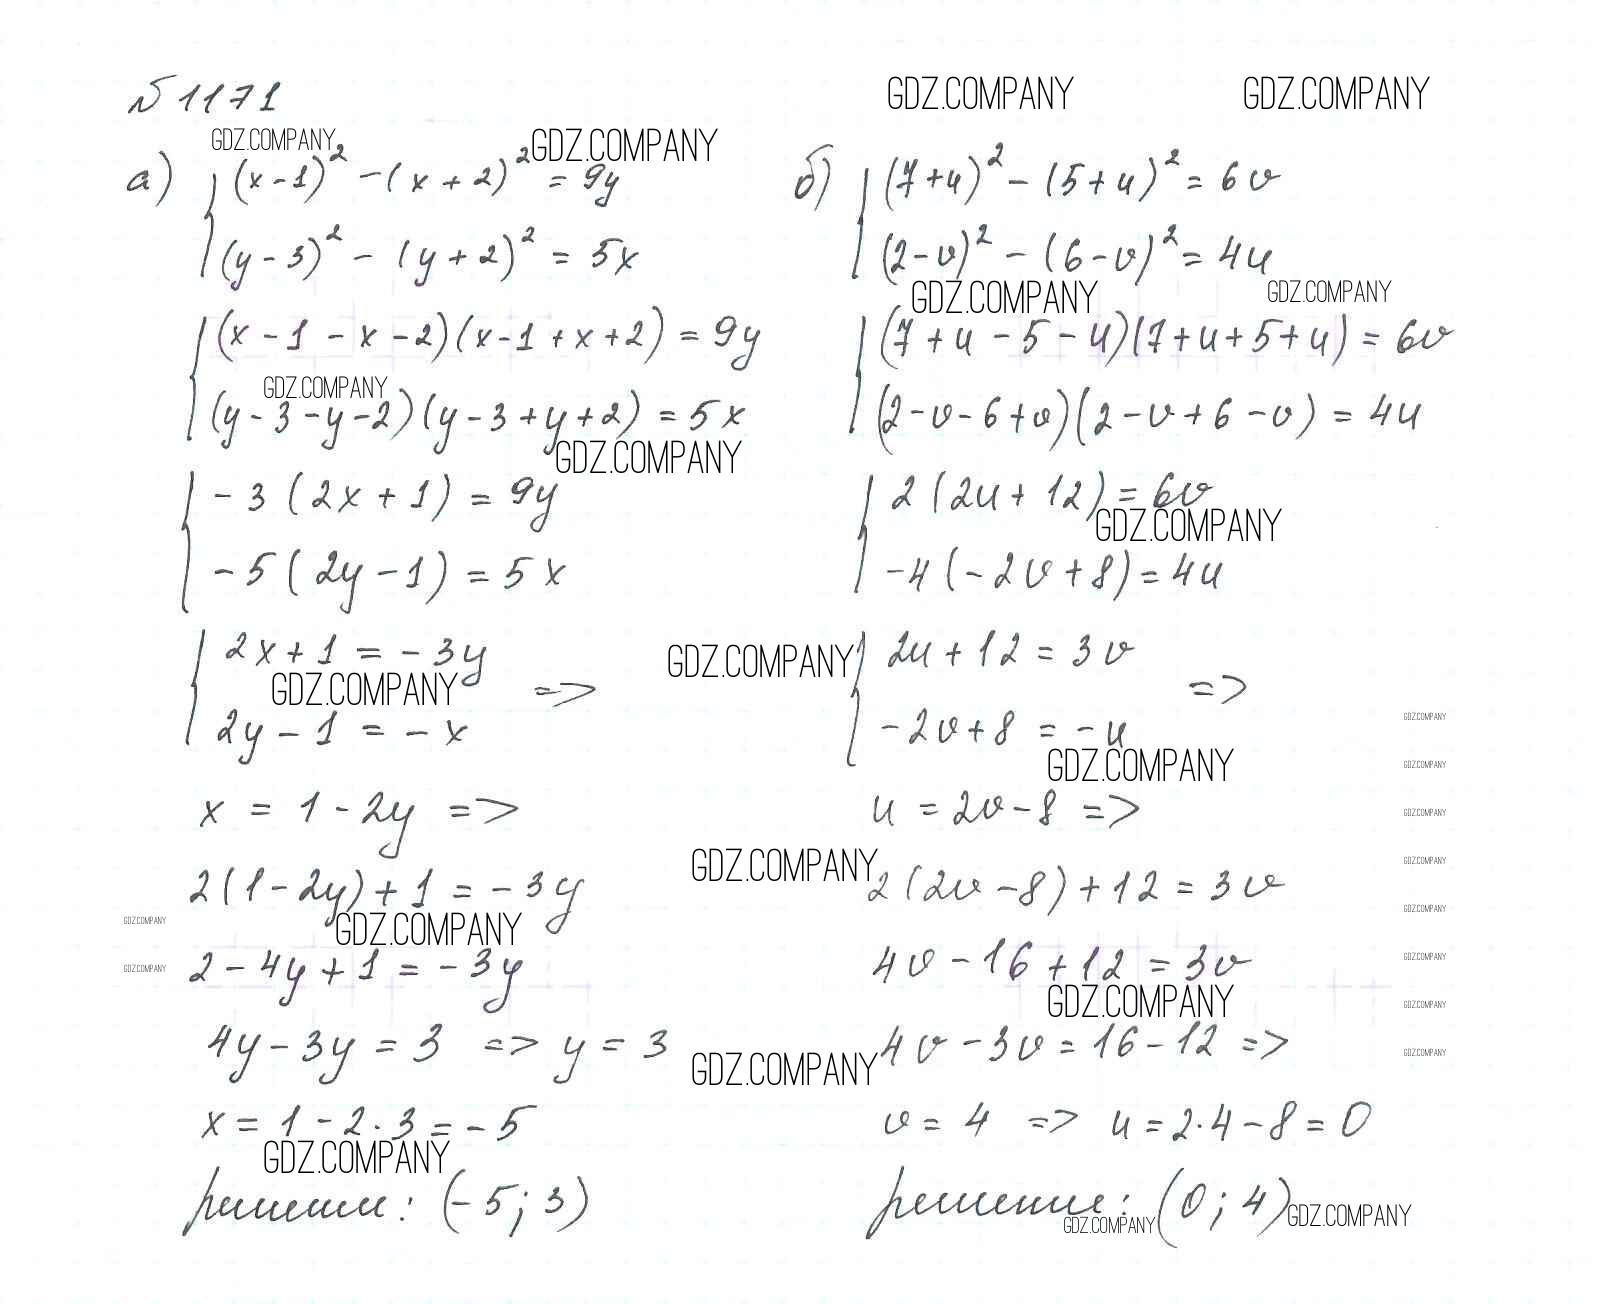 № 1171
GDZ.COMPANY GDZ.COMPANY
GDZ.COMPANY GDZ.COMPANY
а) (x - 1)² - (x + 2)² = 9y
(y - 3)² - (y + 2)² = 5x
(x - 1 - x - 2)(x - 1 + x + 2) = 9y
GDZ.COMPANY
(y - 3 - y - 2)(y - 3 + y + 2) = 5x
GDZ.COMPANY
- 3 (2x + 1) = 9y
- 5 (2y - 1) = 5x
2x + 1 = - 3y
GDZ.COMPANY =>
2y - 1 = - x
x = 1 - 2y =>
2(1 - 2y) + 1 = - 3y
GDZ.COMPANY GDZ.COMPANY
2 - 4y + 1 = - 3y
GDZ.COMPANY
4y - 3y = 3 => y = 3
x = 1 - 2 · 3 = - 5
GDZ.COMPANY
решение: (- 5; 3)
б) (7 + u)² - (5 + u)² = 6v
(2 - v)² - (6 - v)² = 4u
GDZ.COMPANY GDZ.COMPANY
(7 + u - 5 - u)(7 + u + 5 + u) = 6v
(2 - v - 6 + v)(2 - v + 6 - v) = 4u
2 (2u + 12) = 6v
GDZ.COMPANY
- 4 (- 2v + 8) = 4u
GDZ.COMPANY
2u + 12 = 3v
=>
- 2v + 8 = - u
GDZ.COMPANY
u = 2v - 8 =>
GDZ.COMPANY
2 (2v - 8) + 12 = 3v
4v - 16 + 12 = 3v
GDZ.COMPANY
4v - 3v = 16 - 12 =>
GDZ.COMPANY
v = 4 => u = 2 · 4 - 8 = 0
решение: (0; 4)
GDZ.COMPANY GDZ.COMPANY
GDZ.COMPANY
GDZ.COMPANY
GDZ.COMPANY
GDZ.COMPANY
GDZ.COMPANY
GDZ.COMPANY
GDZ.COMPANY
GDZ.COMPANY